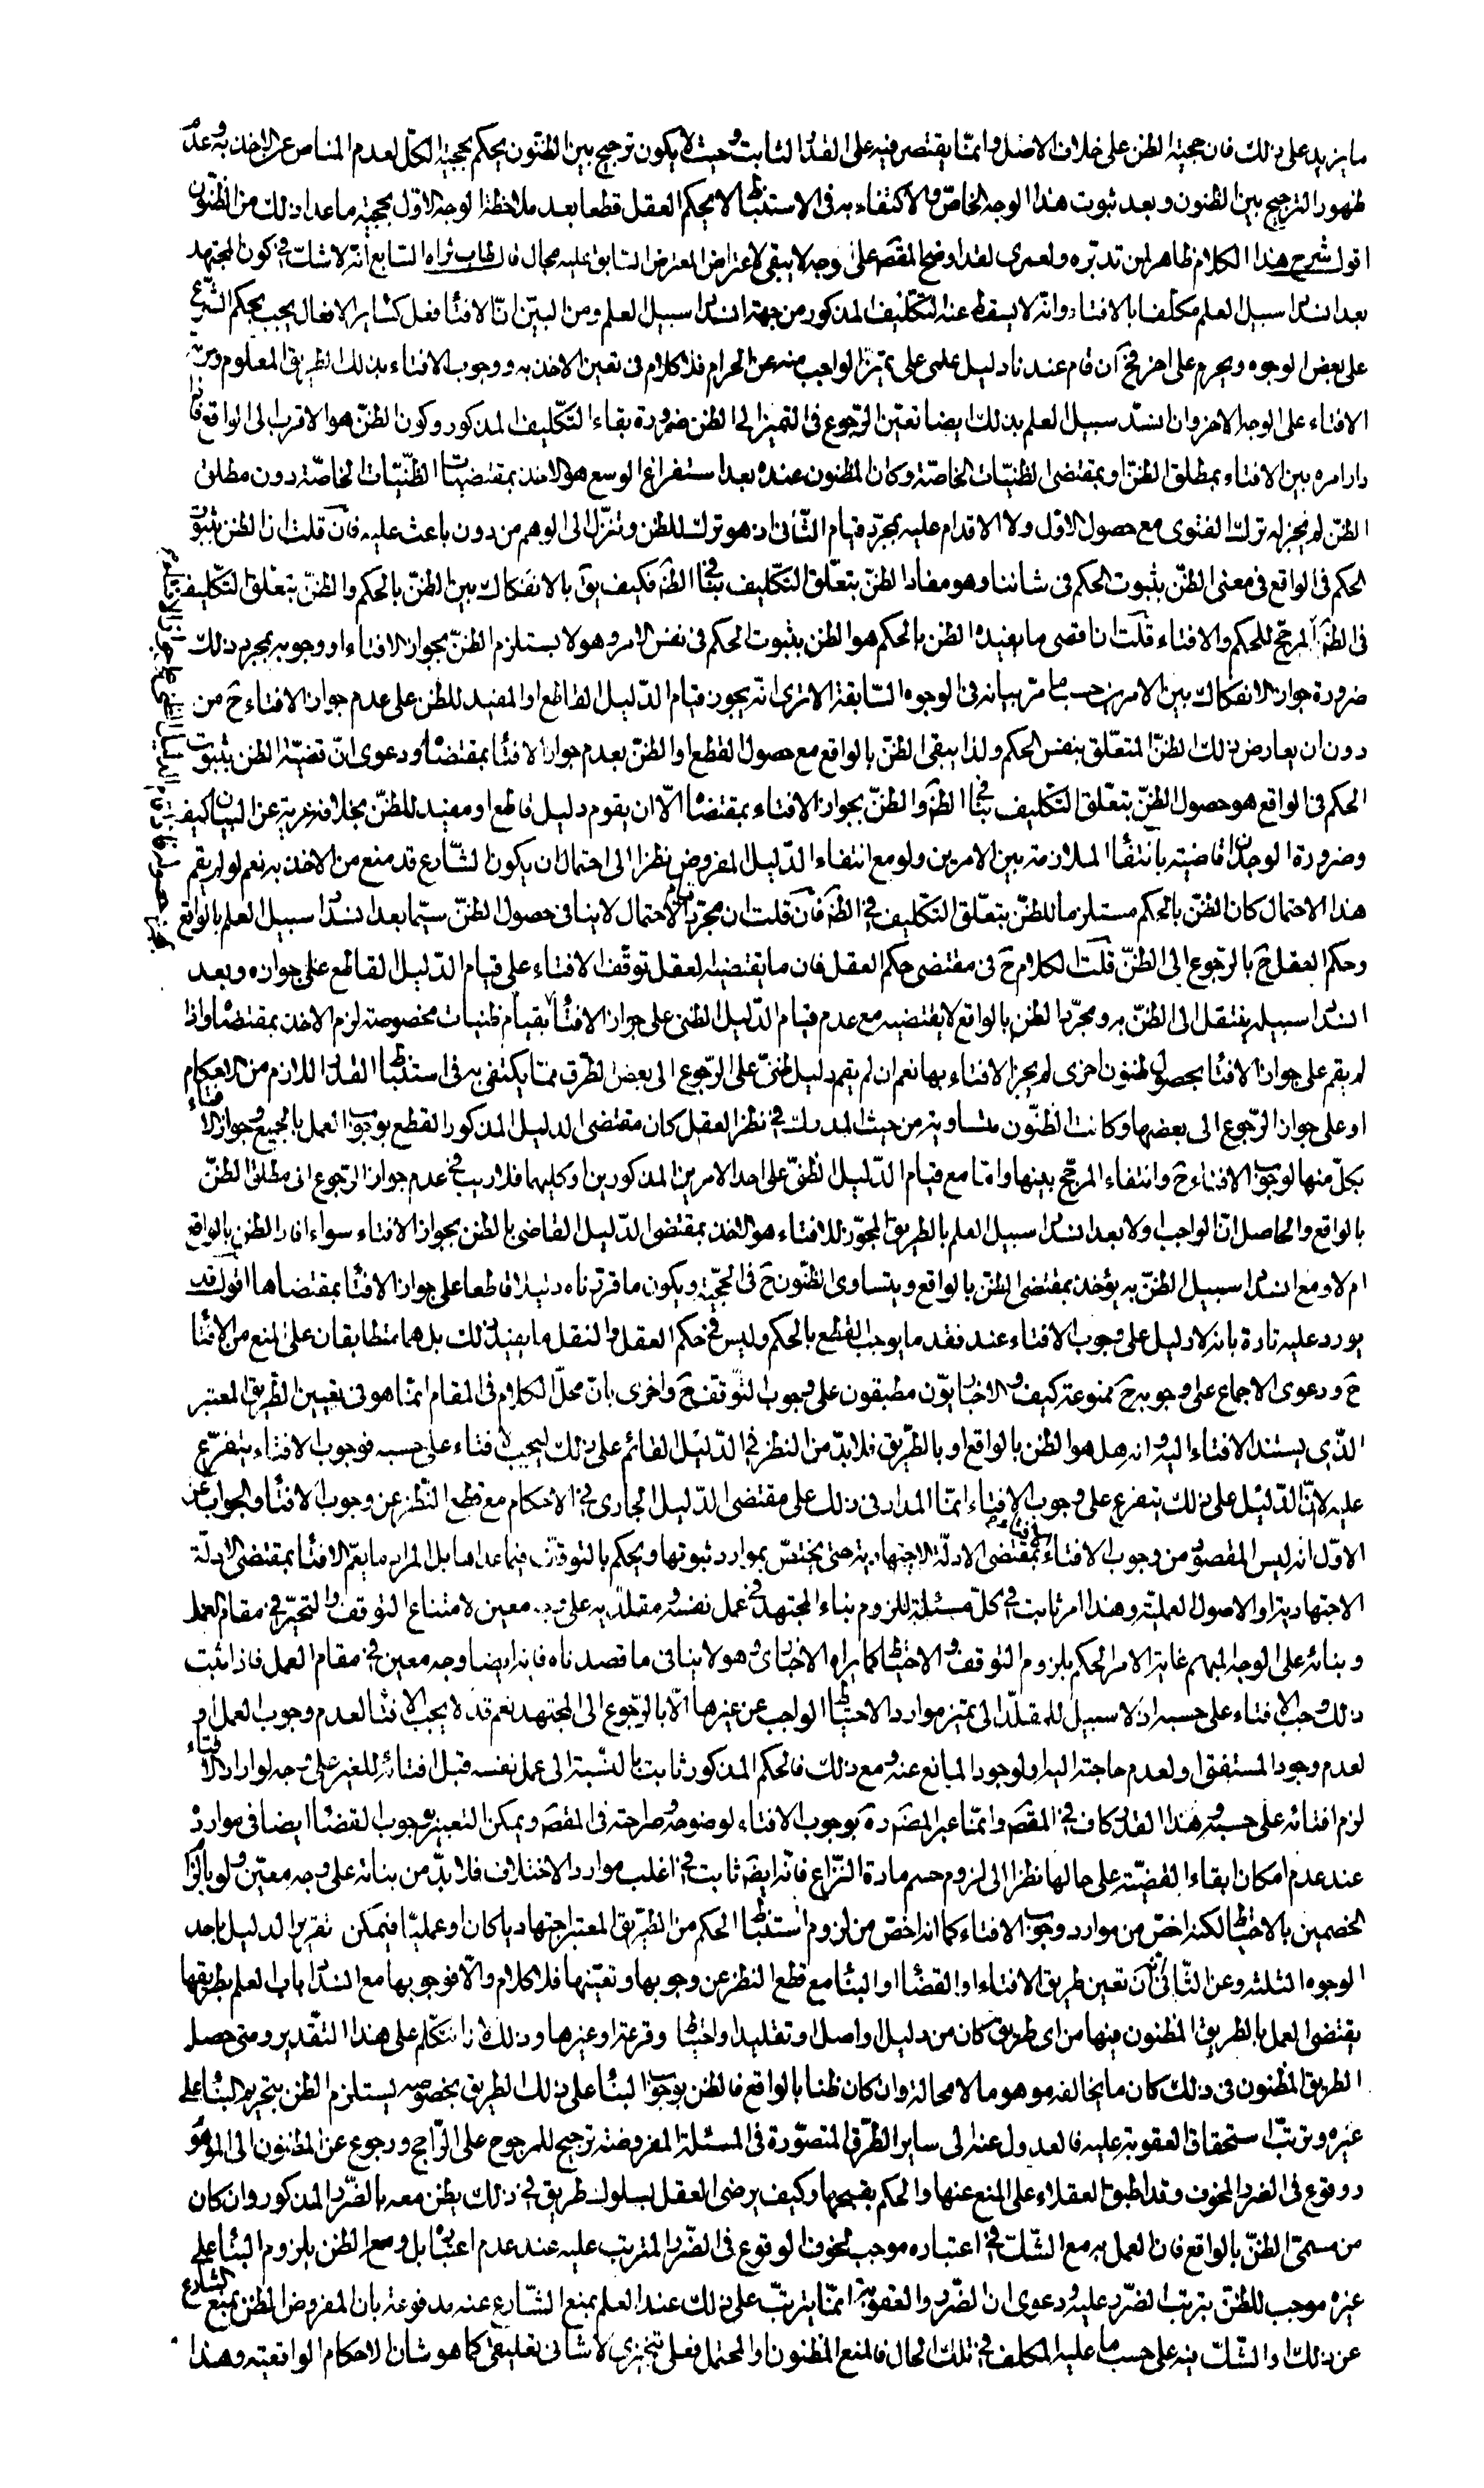 ما يزيد على ذلك فان حجية الظن على خلاف الاصل وانما يقتصر فيه على القدر الثابت وحيث لا يكون ترجيح بين الظنون يحكم بحجية الكل لعدم المناص عن الاخذ به وعدم
ظهور الترجيح بين الظنون وبعد ثبوت هذا الوجه الخاص والاكتفاء به فى الاستنباط لا يحكم العقل قطعا بعد ملاحظة الوجه الاول بحجية ما عدا ذلك من الظنون
اقول شرح هذا الكلام ظاهر لمن تدبره ولعمرى لقد اوضح المقصد على وجه لا يبقى لاعتراض المعترض السابق عليه مجال قال طاب ثراه السابع انه لا شك فى كون المجتهد
بعد انسداد سبيل العلم مكلفا بالافتاء وانه لا يسقط عنه التكليف المذكور من جهة انسداد سبيل العلم ومن البين ان الافتاء فعل كسائر الافعال يجب بحكم الشرع
على بعض الوجوه ويحرم على اخر فح ان قام عندنا دليل علمى على تميز الواجب منه عن الحرام فلا كلام فى تعين الاخذ به ووجوب الافتاء بذلك الطريق المعلوم وحرمة
الافتاء على الوجه الاخر وان انسد سبيل العلم بذلك ايضا تعين الرجوع فى التميز الى الظن ضرورة بقاء التكليف المذكور وكون الظن هو الاقرب الى الواقع فاذا
دار امره بين الافتاء بمطلق الظن او بمقتضى الظنيات الخاصة وكان المظنون عنده بعد استفراغ الوسع هو الاخذ بمقتضيات الظنيات الخاصة دون مطلق
الظن لم يجز له ترك الفتوى مع حصول الاول ولا الاقدام عليه بمجرد قيام الثانى اذ هو ترك للظن وتنزل الى الوهم من دون باعث عليه فان قلت ان الظن بثبوت
الحكم فى الواقع فى معنى الظن بثبوت الحكم فى شاننا وهو مفاد الظن بتعلق التكليف بنا فى الظ فكيف يق بالانفكاك بين الظن بالحكم والظن بتعلق التكليف
فى الظ المرجح للحكم والافتاء قلت ان اقصى ما يفيده الظن بالحكم هو الظن بثبوت الحكم فى نفس الامر وهو لا يستلزم الظن بجواز الافتاء او وجوبه بمجرد ذلك
ضرورة جواز الانفكاك بين الامرين حسب ما مر بيانه فى الوجوه السابقة الا ترى انه يجوز قيام الدليل القاطع او المفيد للظن على عدم جواز الافتاء ح من
دون ان يعارض ذلك الظن المتعلق بنفس الحكم ولذا يبقى الظن بالواقع مع حصول القطع او الظن بعدم جواز الافتاء بمقتضاه ودعوى ان قضية الظن بثبوت
الحكم فى الواقع هو حصول الظن بتعلق التكليف بنا فى الظ والظن بجواز الافتاء بمقتضاه الا ان يقوم دليل قاطع او مفيد للظن بخلافه عرية عن البيان كيف
وضرورة الوجدان قاضية بانتفاء الملازمة بين الامرين ولو مع انتفاء الدليل المفروض نظرا الى احتمال ان يكون الشارع قد منع من الاخذ به نعم لو لم يقم
هذا الاحتمال كان الظن بالحكم مستلزما للظن بتعلق التكليف فى الظ فان قلت ان مجرد قيام الاحتمال لا ينافى حصول الظن سيما بعد انسداد سبيل العلم بالواقع
وحكم العقل ح بالرجوع الى الظن قلت الكلام ح فى مقتضى حكم العقل فان ما يقتضيه العقل توقف الافتاء على قيام الدليل القاطع على جوازه وبعد
انسداد سبيله ينتقل الى الظن به ومجرد الظن بالواقع لا يقتضيه مع عدم قيام الدليل الظنى على جواز الافتاء بقيام ظنيات مخصوصة لزم الاخذ بمقتضاها واذا
لم يقم على جواز الافتاء بحصول ظنون اخرى لم يجز الافتاء بها نعم ان لم يقم دليل ظنى على الرجوع الى بعض الطرق مما يكتفى به فى استنباط القدر اللازم من الاحكام
او على جواز الرجوع الى بعضها وكانت الظنون متساوية من حيث المدرك فى نظر العقل كان مقتضى الدليل المذكور القطع بوجوب العمل بالجميع وجواز الافتاء
بكل منها لوجوب الافتاء ح وانتفاء المرجح بينها واما مع قيام الدليل الظنى على احد الامرين المذكورين او كليهما فلا ريب فى عدم جواز الرجوع الى مطلق الظن
بالواقع والحاصل ان الواجب اولا بعد انسداد سبيل العلم بالطريق المجوز للافتاء هو الاخذ بمقتضى الدليل القاضى بالظن بجواز الافتاء سواء افاد الظن بالواقع
ام لا ومع انسداد سبيل الظن به يؤخذ بمقتضى الظن بالواقع ويتساوى الظنون ح فى الحجية ويكون ما قررناه دليلا قاطعا على جواز الافتاء بمقتضاها اقول قد
يورد عليه تارة بانه لا دليل على وجوب الافتاء عند فقد ما يوجب القطع بالحكم وليس فى حكم العقل والنقل ما يفيد ذلك بل هما متطابقان على المنع من الافتاء
ح ودعوى الاجماع على وجوبه ح ممنوعة كيف والاخباريون مطبقون على وجوب التوقف ح واخرى بان محل الكلام فى المقام انما هو فى تعيين الطريق المعتبر
الذى يستند الافتاء اليه وانه هل هو الظن بالواقع او بالطريق فلا بد من النظر فى الدليل القائم على ذلك ليجب الافتاء على حسبه فوجوب الافتاء يتفرع
عليه لا ان الدليل على ذلك يتفرع على وجوب الافتاء انما المدار فى ذلك على مقتضى الدليل الجارى فى الاحكام مع قطع النظر عن وجوب الافتاء والجواب عن
الاول انه ليس المقصود من وجوب الافتاء الافتاء بمقتضى الادلة الاجتهادية حتى يختص بموارد ثبوتها ويحكم بالتوقف فيما عداها بل المراد ما يعم الافتاء بمقتضى الادلة
الاجتهادية او الاصول العملية وهذا امر ثابت فى كل مسئلة للزوم بناء المجتهد فى عمل نفسه ومقلديه على وجه معين لامتناع التوقف والتحير فى مقام العمل
وبنائه على الوجه المبهم غاية الامر الحكم بلزوم التوقف والاحتياط كما يراه الاخبارى وهو لا ينافى ما قصدناه فانه ايضا وجه معين فى مقام العمل فاذا ثبت
ذلك وجب الافتاء على حسبه اذ لا سبيل للمقلد الى تميز موارد الاحتياط الواجب عن غيرها الا بالرجوع الى المجتهد نعم قد لا يجب الافتاء لعدم وجوب العمل او
لعدم وجود المستفتى او لعدم حاجته اليه او لوجود المانع عنه ومع ذلك فالحكم المذكور ثابت بالنسبة الى عمل نفسه قبل افتائه للغير على وجه لو اراد الافتاء
لزم افتائه على حسبه وهذا القدر كاف فى المقصد وانما عبر المصنف ره بوجوب الافتاء لوضوحه وصراحته فى المقصد ويمكن التعبير بوجوب القضاء ايضا فى موارده
عند عدم امكان ابقاء القضية على حالها نظرا الى لزوم حسم مادة النزاع فانه ايضا ثابت فى اغلب موارد الاختلاف فلا بد من بنائه على وجه معين ولو بالزام
الخصمين بالاحتياط لكنه اخص من موارد وجوب الافتاء كما انه اخص من لزوم استنباط الحكم من الطريق المعتبر اجتهاديا كان او عمليا فيمكن تقرير الدليل باحد
الوجوه الثلثة وعن الثانى بان تعين طريق الافتاء او القضاء او البناء مع قطع النظر عن وجوبها وتعينها فلا كلام والا فوجوبها مع انسداد باب العلم بطريقها
يقتضى العمل بالطريق المظنون فيها من اى طريق كان من دليل او اصل او تقليد او احتياط وقرعة او غيرها وذلك اذا نتكلم على هذا التقدير ومتى حصل
الطريق المظنون فى ذلك كان ما يخالفه موهوما لا محالة وان كان ظنا بالواقع فالظن بوجوب البناء على ذلك الطريق بخصوصه يستلزم الظن بتحريم البناء على
غيره وترتب استحقاق العقوبة عليه فالعدول عنه الى ساير الطرق المتصورة فى المسئلة المفروضة ترجيح للمرجوح على الراجح ورجوع عن المظنون الى الموهوم
ووقوع فى الضرر المخوف وقد اطبق العقلاء على المنع عنها والحكم بقبحها وكيف يرضى العقل بسلوك طريق فى ذلك يظن معه بالضرر المذكور وان كان
من مسمى الظن بالواقع فان العمل به مع الشك فى اعتباره موجب لخوف الوقوع فى الضرر المترتب عليه عند عدم اعتباره بل ومع الظن بلزوم البناء على
غيره موجب للظن بترتب الضرر عليه ودعوى ان الضرر والعقوبة انما يترتب على ذلك عند العلم بمنع الشارع عنه مدفوعة بان المفروض الظن بمنع الشارع
عن ذلك والشك فيه على حسب ما عليه المكلف فى تلك الحال فالمنع المظنون او المحتمل فعلى تنجيزى لا شانى تعليقى كما هو شان الاحكام الواقعية وهذا